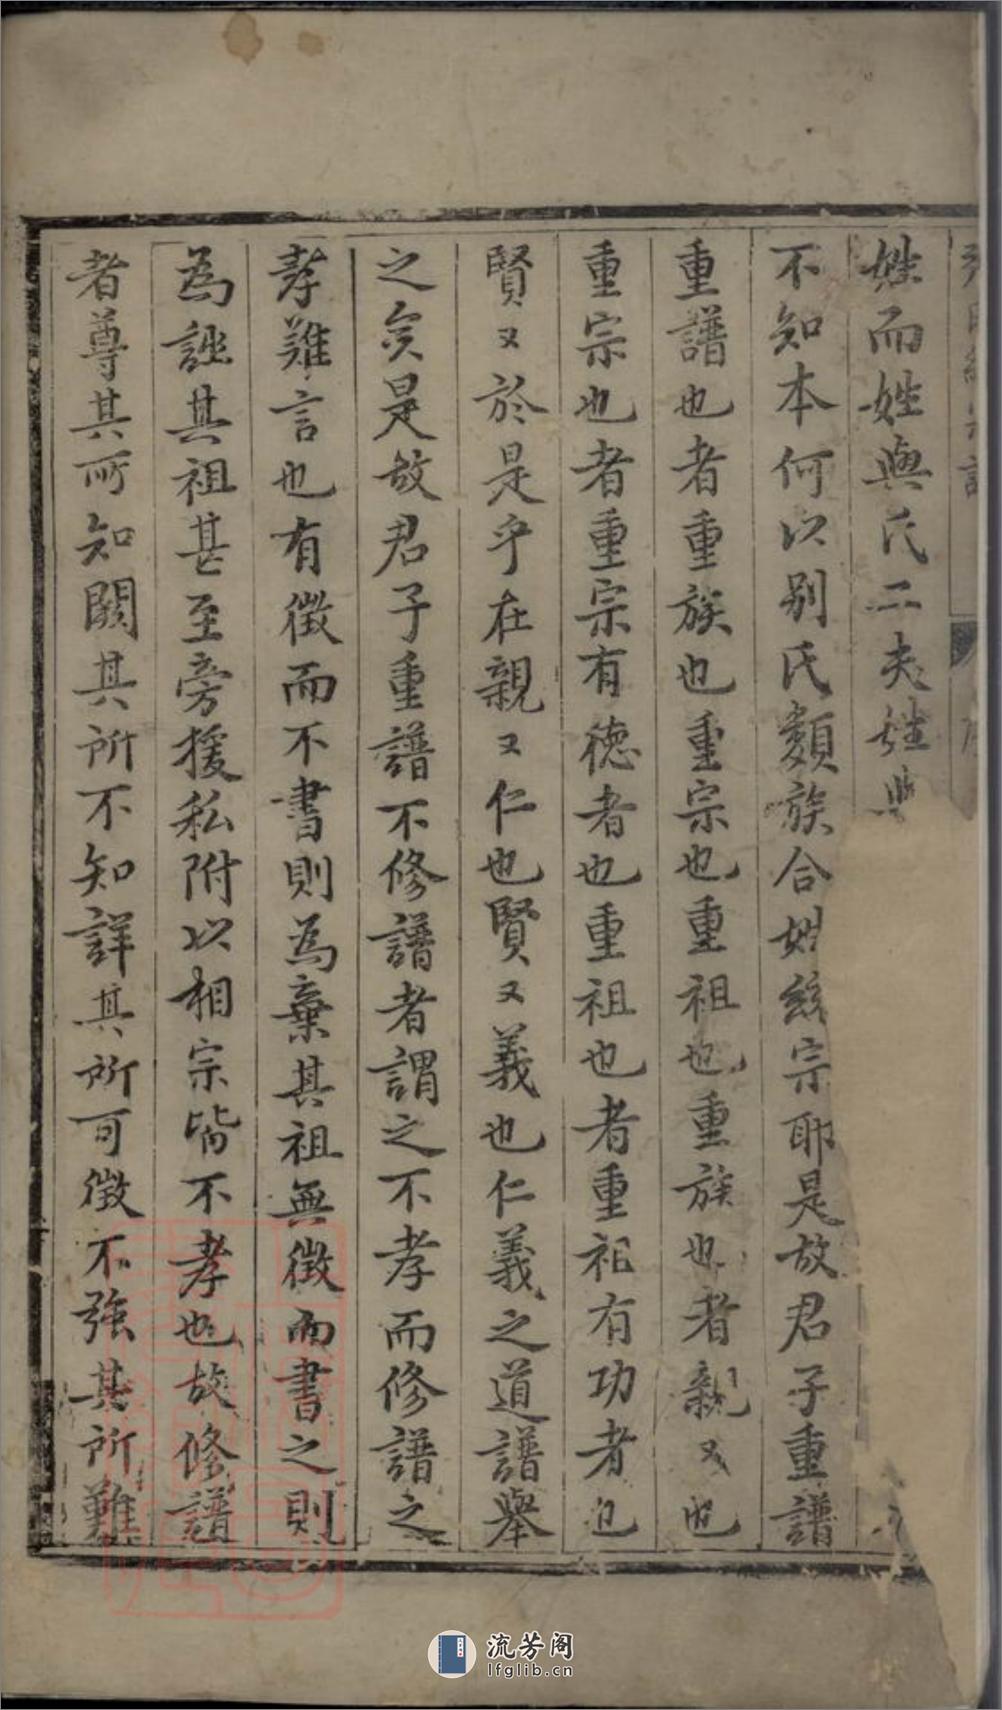 姓而姓與氏二夫姓與
不知本何以别氏類族合姓統宗耶是故君子重譜
重譜也者重族也重宗也重祖也重族也者親又也
重宗也者重宗有德者也重祖也者重祖有功者也
賢又於是乎在親又仁也賢又義也仁義之道譜舉
之矣是故君子重譜不修譜者謂之不孝而修譜之
孝難言也有徵而不書則為棄其祖無徵而書之則
為誣其祖甚至旁援私附以相宗皆不孝也故修譜
者尊其所知闕其所不知詳其所可徵不強其所難
流芳阁
lfglib.cn